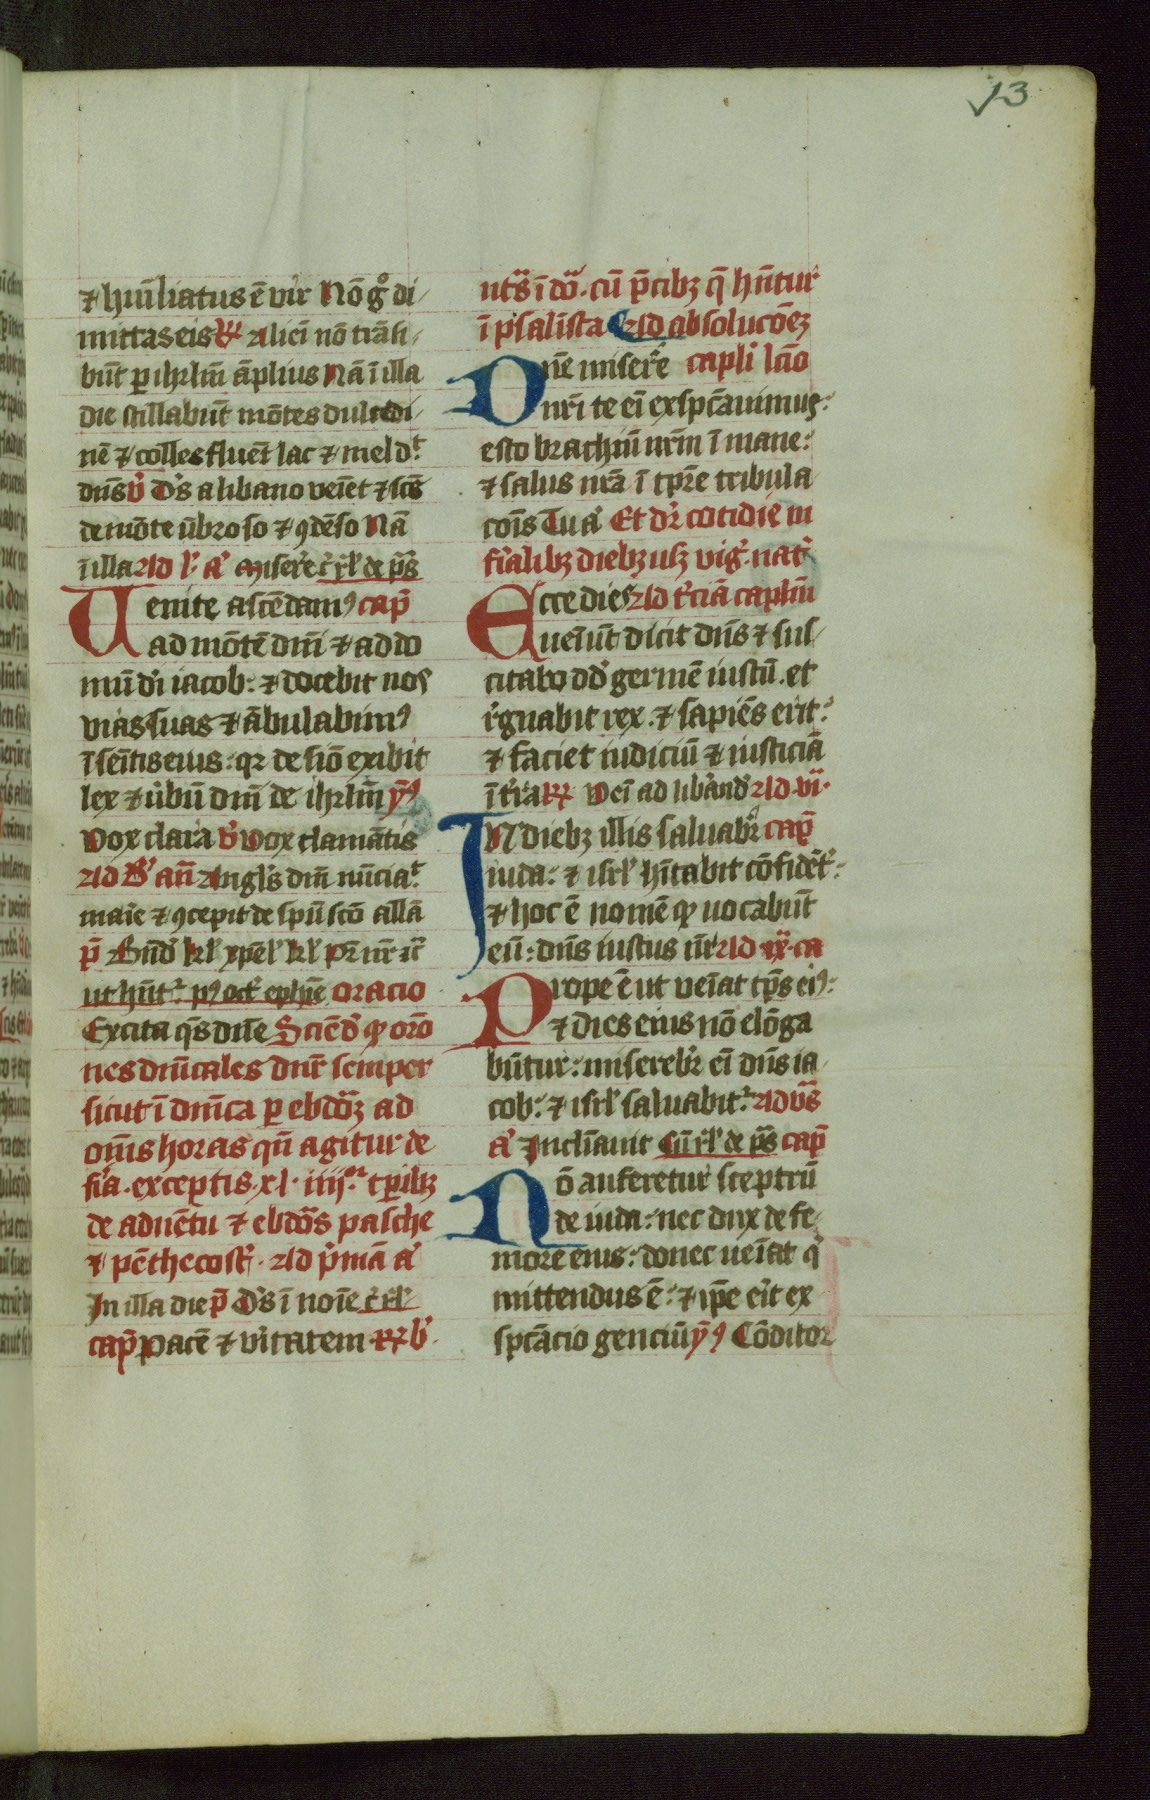 13
⁊ huīliatus ē vir Nō gͦ di
mittas eis R̷ Alieī nō trāsi
būt ꝑ ihrlm̄ āplius Nā ī illa
die stillabūt mōtes dulcedi
nē ⁊ colles fluēt lac ⁊ mel d͛t
dn̄s v̊ D͛s a libano veīet ⁊ scs̄
de mōte ūbroso ⁊ ꝯdēso Nā
ī illa Ad l͛ a͛ Miser͛e
Uenite ascēdamꝰ cap̄
ad mōtē dn̄i ⁊ ad do
mū d͛i iacob: ⁊ docebit nos
vias suas ⁊ ābulabimꝰ
ī sēitis eius: qꝛ de siō exibit
lex ⁊ v͛bū dn̄i de ihrlm̄ ȳꝰ
Vox clara v̊ Vox clamātis
Ad B͛ añ Angl͛s dn̄i nūcia͛t
marie ⁊ ꝯcepit de spū scō allā
p̄ Bn̄d͛ kl͛ xpel͛ kl͛ pr̄ nr̄
ut hn̄t᷑ pꝰ oct͛ ephīe oracio
Excita qs̄ dn̄e Sciēd͛ ꝙ oro͛
nes dn̄icales dn̄r semper
sicut ī dn̄ica ꝑ ebdōꝫ ad
om̄s horas qn̄ agitur de
f͛ia. exceptis .xl. iiijᵒʳ tꝑibꝫ
de aduētu ⁊ ebdōs pasche
⁊ pēthecost͛. Ad p͛mā a͛
In illa die p̄ D͛s ī noīe
cap̄ Pacē ⁊ v͛itatem R̷ b͛.
ut s̄ ī do͛. cū p̄cibꝫ q̄ hn̄tur
ī psalīsta Ad absolucōeꝫ
Dn̄e miser͛e capli͛ lc̄o
nr̄i te eī exspc̄auimus:
esto brachiū nr̄m ī mane:
⁊ salus nr̄a ī tp̄re tribula
cōis Tu a͛ Et dr̄ cotidie in
f͛ialibꝫ diebꝫ usꝫ vig͛. nat͛
Ecce dies Ad t͛ciā caplm̄
ueīūt dicit dn̄s ⁊ sus
citabo dd͛ germē iustū. et
r͛gnabit rex. ⁊ sapiēs erit:
⁊ faciet iudiciū ⁊ iusticiā
ī t͛ra R̷ Veī ad lib͛and͛ Ad .vi.
IN diebꝫ illis saluab͛r cap̄
iuda: ⁊ isrl͛ hīabit cōfidēt͛:
⁊ hoc ē nomē ꝙ uocabūt
eū: dn̄s iustus nr̄ Ad .ix. ca
Prope ē ut veīat tp̄s eiꝰ:
⁊ dies eius nō elōga
būtur: miserebr̄ eī dn̄s ia
cob: ⁊ isrl͛ saluabit᷑ Ad vs̄
a͛ Inclīauit cap̄
Nō auferetur sceptrū
de iuda: nec dux de fe
more eius: donec ueīat q͛
mittendus ē: ⁊ ip̄e erit ex
spc̄acio genciū ȳꝰ Cōditor